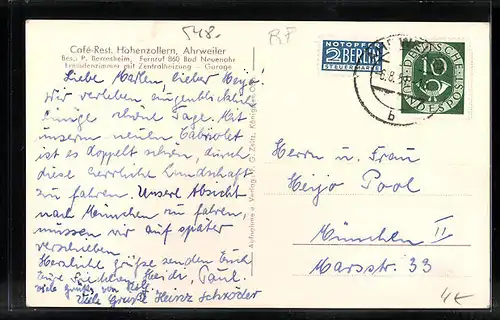 548.- RF
Café-Rest. Hohenzollern, Ahrweiler
Bes.: P. Berresheim, Fernruf 860 Bad Neuenahr
Fremdenzimmer mit Zentralheizung - Garage
Liebe Marlen, lieber Heijo,
Wir verleben augenblicklich
einige schöne Tage. Mit
unserem neuen Cabriolet
ist es doppelt schön, durch
diese herrliche Landschaft
zu fahren. Unsere Absicht
nach München zu fahren,
müssen wir auf später
verschieben.
Herzliche Grüße senden Euch
Heidi, Paul.
viele Grüße von
Viele Grüße Heinz Schröder
Aufnahme u. Verlag
NOTOPFER
2 BERLIN
STEUERMARKE
b
DEUTSCHE
10
BUNDESPOST
Herrn u. Frau
Heijo Pool
München II
Marsstr. 33
4€